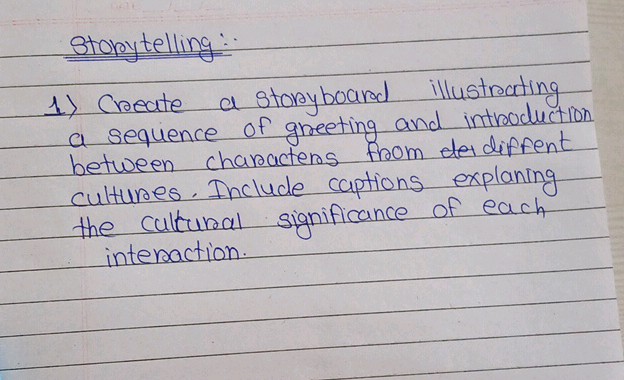 Storytelling :-
1) Create a storyboard illustrating
a sequence of greeting and introduction
between characters from diffent
cultures. Include captions explaning
the cultural significance of each
interaction.